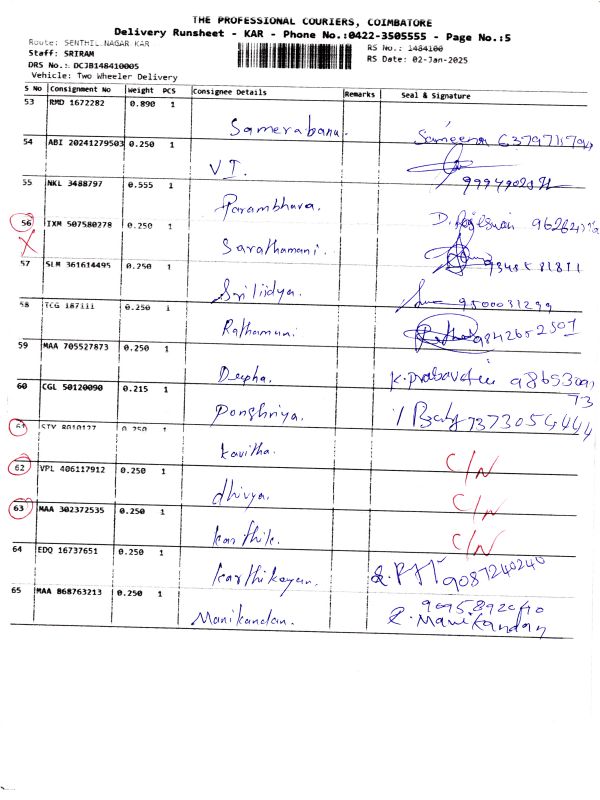 THE PROFESSIONAL COURIERS, COIMBATORE
Delivery Runsheet - KAR - Phone No.:0422-3505555 - Page No.:5
Route: SENTHIL NAGAR KAR
RS No.: 1484100
Staff: SRIRAM
RS Date: 02-Jan-2025
DRS No.: DCJB148410005
Vehicle: Two Wheeler Delivery
S No Consignment No Weight PCS Consignee Details Remarks Seal & Signature
53 RMD 1672282 0.890 1
Samerabanu. Sameena
54 ABI 20241279503 0.250 1
V I.
55 NKL 3488797 0.555 1
Parambhara.
56 IXM 507580278 0.250 1
Sarathamani.
57 SLM 361614495 0.250 1
9500031299
58 TCG 187111 0.250 1
Rathamani 9842652507
59 MAA 705527873 0.250 1
Deepha. K. Prabavathi
60 CGL 50120090 0.215 1
Ponshriya. 7373054444
61 STV 8010127 0.250 1
Kavitha. C/N
62 VPL 406117912 0.250 1
dhivya. C/N
63 MAA 302372535 0.250 1
Karthik. C/N
64 EDQ 16737651 0.250 1
Karthikeyan. 9087240240
65 MAA 868763213 0.250 1
Manikandan. R. Manikandan